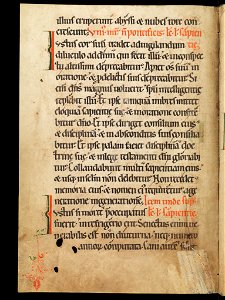 illius eruperunt abyssi et nubes rore con
crescunt.
Iustus cor suum tradet ad uigilandum
diluculo ad dnm qui fecit illū et in conspectu
altissimi deprecabitur. Aperiet os suum in
oratione et pro delictis suis deprecabitur. Si
enim dns magnus uoluerit spū intelligentie
replebit illū. Et ipse tamquā imbres mittet
eloquia sapientie sue et in oratione confite
bitur dño. Et ipse diriget consilium eius
et disciplinā et in absconditis suis consilia
bitur. Et ipse palam faciet disciplinā doc
trine sue et in lege testamenti dñi gloriabi
tur. Collaudabunt multi sapientiam eius
et usq; in sclm non delebitur. Non recedet
memoria eius et nomen eī requiretur a ge
neratione in generationem.
Iustus si morte preoccupatus
fuerit in refrigerio erit. Senectus enim ue
nerabilis est non diuturna neq; numero
annorum computata. Cani autem